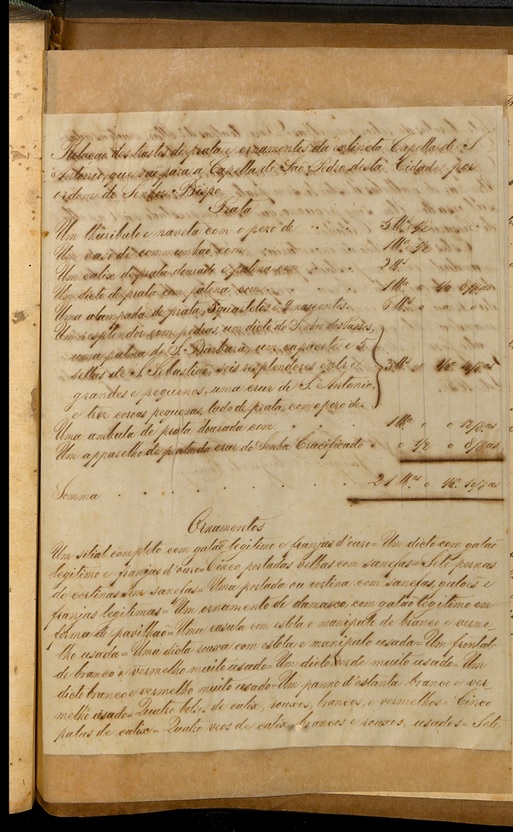 Relação dos trastes de prata e ornamentos da extincta Capella de S.
Antonio, que vai para a Capella de São Pedro desta Cidade, por
ordem do Senhor Bispo.
Prata
Um thuribulo e naveta com o pezo de 5 M.os 1/2
Um vaso de communhão com 1 M.o 1/2
Um calix de prata dourado e patena com 2 M.s
Um dicto de prata com patena com 1 M.o o
Uma alampada de prata, 5 quarteloes e 2 nascentes. 6 M.s o
Um resplendor com pedras, um dicto do Senhor dos Passos,
uma palma de S. Barbara, um capacete e 5
settas de S. Sebastião, seis resplendores entre
grandes e pequenos, uma cruz de S. Antonio,
e tres coroas pequenas, tudo de prata, com o pezo de 3 M.s
Uma ambula de prata dourada com 1 M.o o o
Um apparelho de prata da cruz do Senhor Crucificado o 1/2 o
Somma 21 M.os o
Ornamentos
Um sitial completo com galão legitimo e franjas d'ouro = Um dicto com galão
legitimo e franjas d'ouro = Cinco portadas velhas com sanefas = Sete pernas
de cortinas sem sanefas = Uma portada ou cortina com sanefas, galoes e
franjas legitimas = Um ornamento de damasco, com galão legitimo em
forma de pavilhão = Uma casula com estola e manipulo de branco e verme-
lho usada = Uma dicta rouxa com estola e manipulo usada = Um frontal
de branco e vermelho muito usado = Um dicto verde muito usado = Um
dicto branco e vermelho muito usado = Um panno d'estante branco e ver
melho usado = Quatro bolsas de calix, rouxos, brancos, e vermelhos = Cinco
palas de calix = Quatro veos de calix brancos e rouxos, usados = Sete